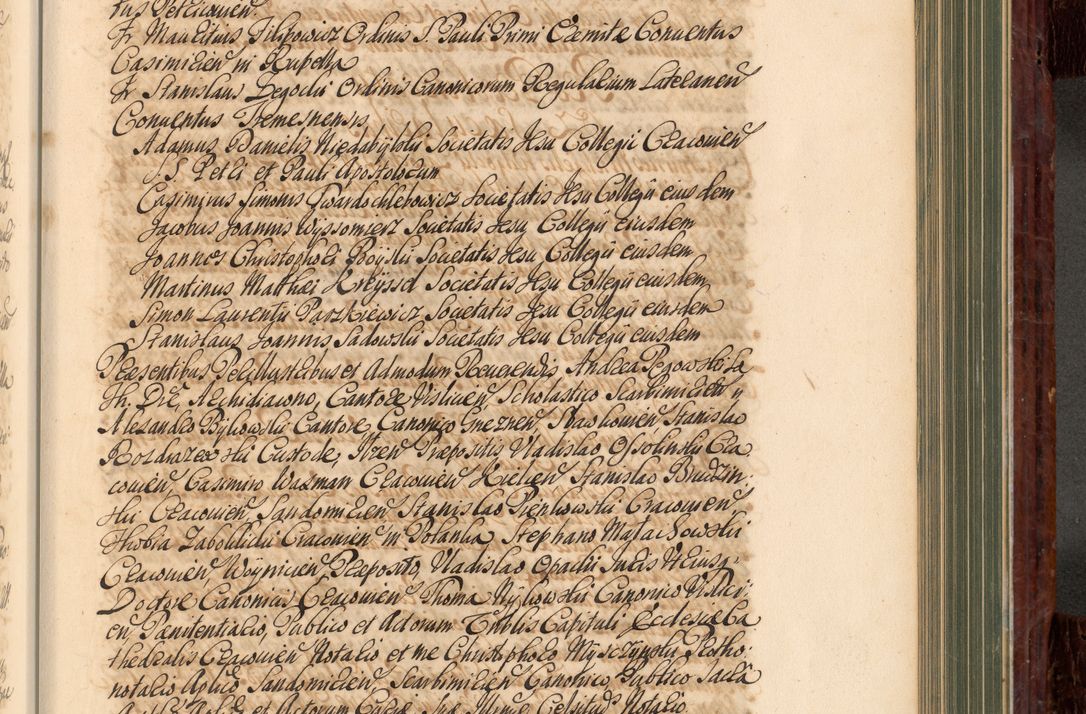 Fr Mauritius Filipowicz Ordinis S. Pauli Primi Eremitæ Conuentus
Casimirien in Rupella
Fr Stanislaus Zegocki Ordinis Canonicorum Regularium Lateranen
Conuentus Tremesnensis
Adamus Danielis Niedabylski Societatis Jesu Collegii Cracouien
S.S. Petri et Pauli Apostolorum
Casimirus Simonis Gwardochlebowicz Societatis Jesu Collegii eiusdem
Jacobus Joannis Wyssomierz Societatis Jesu Collegii eiusdem
Joannes Christophori Boyski Societatis Jesu Collegii eiusdem
Martinus Matthæi Kreyssel Societatis Jesu Collegii eiusdem
Simon Laurentii Parzkiewicz Societatis Jesu Collegii eiusdem
Stanislaus Joannis Sadowski Societatis Jesu Collegii eiusdem
Præsentibus Perillustribus et Admodum Reuerendis Andrea Pegowski Sa
Th. Dre, Archidiacono, Cantore Vislicien Scholastico Scarbimirien
Alexandro Bykowski Cantore, Canonico Gneznen Stanislao
Rozdrazewski Custode, Præpositis Vladislao Ossolinski Cra
couien, Casimiro Waxman Cracouien Kielcen Stanislao Brudzin
ski Cracouien, Sandomirien Stanislao Pienkowski Cracouien
Zaboklicki Cracouien in Polanka Stephano Matachowski
Cracouien, Woynicien Præposito, Vladislao Opacki Iuris Vtriusq
Doctore Canonicis Cracouien Thoma Canonico Vislici
en, Pænitentiario, Publico et Actorum Capituli Ecclesiæ Ca
thedralis Cracouien Notario et me Christophoro Protho:
notario Aplico Sandomirien, Scarbimirien Canonico Publico Sacra
et Actorum Celsitud Notario